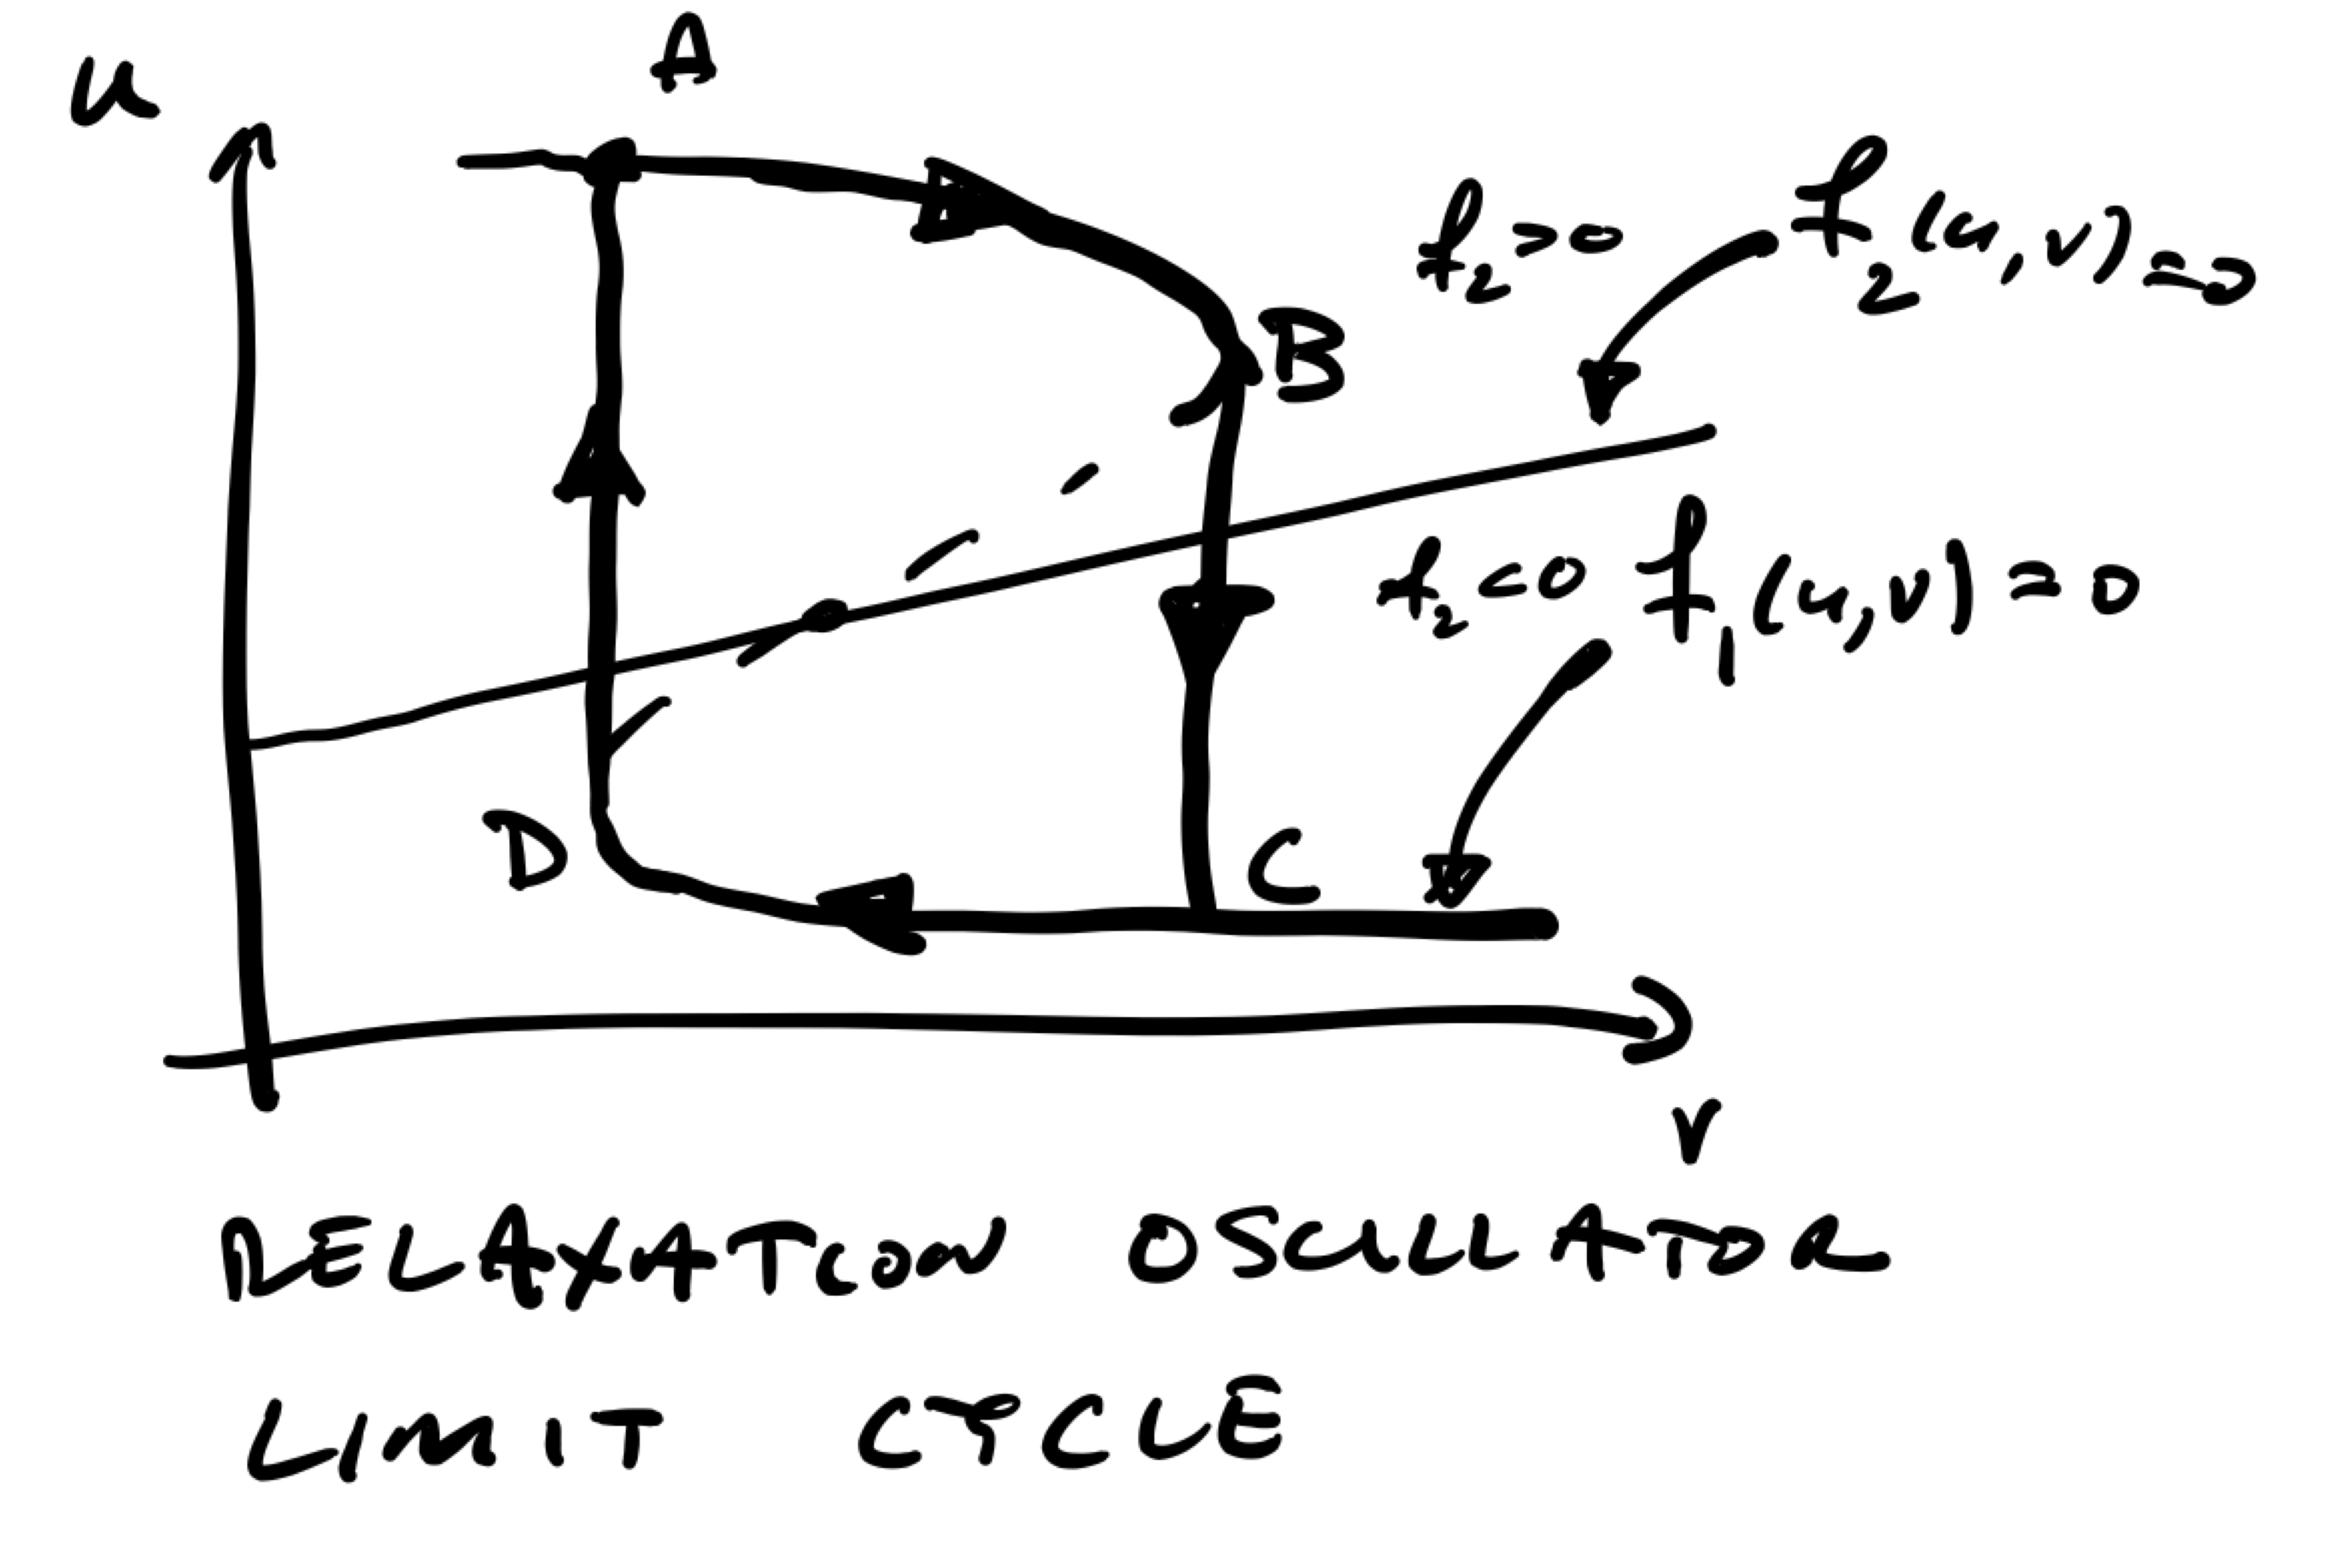 A
u
f₂>0
f₂(u,v)=0
B
f₂<0
f₁(u,v)=0
D
C
v
RELAXATION OSCILLATOR
LIMIT CYCLE